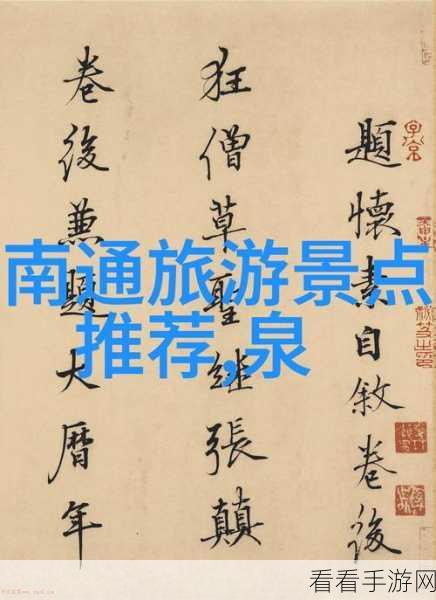 題懷素自敘卷後
狂僧草聖継張顛
卷後兼題大曆年
南通旅游景点
推荐,泉
子京
看看手游网